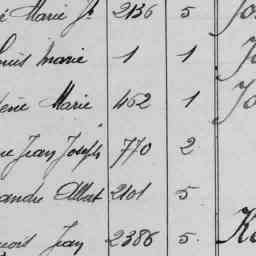 é Marie Jh 2136 5 Jo
ouis Marie 1 1 J
Marie 452 1 Jo
Jean Joseph 770 2
andre Albert 2101 5
çois Jean 2386 5. Ke